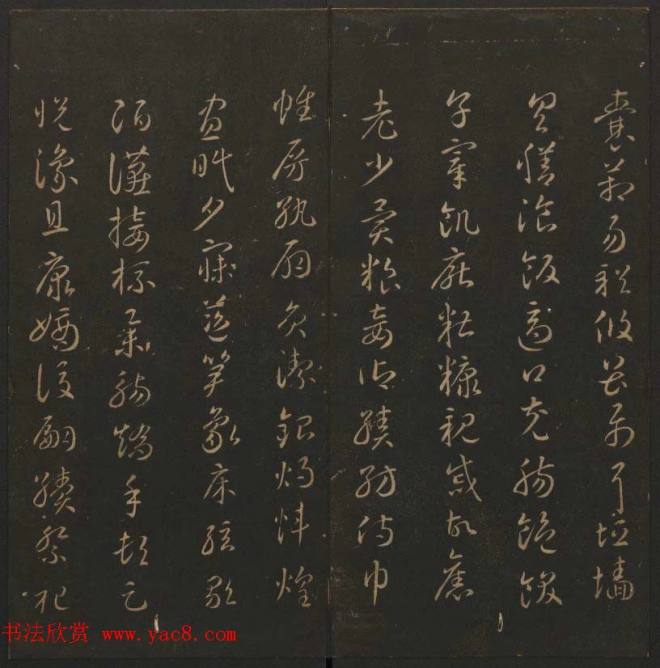 囊箱易輶攸畏屬耳垣墻
具膳飡飯適口充腸飽飫
亨宰飢厭糟糠親戚故舊
老少異糧妾御績紡侍巾
帷房紈扇員潔銀燭煒煌
晝眠夕寐藍笋象床弦歌
酒讌接杯舉觴矯手頓足
悅豫且康嫡後嗣續祭祀
书法欣赏 www.yac8.com